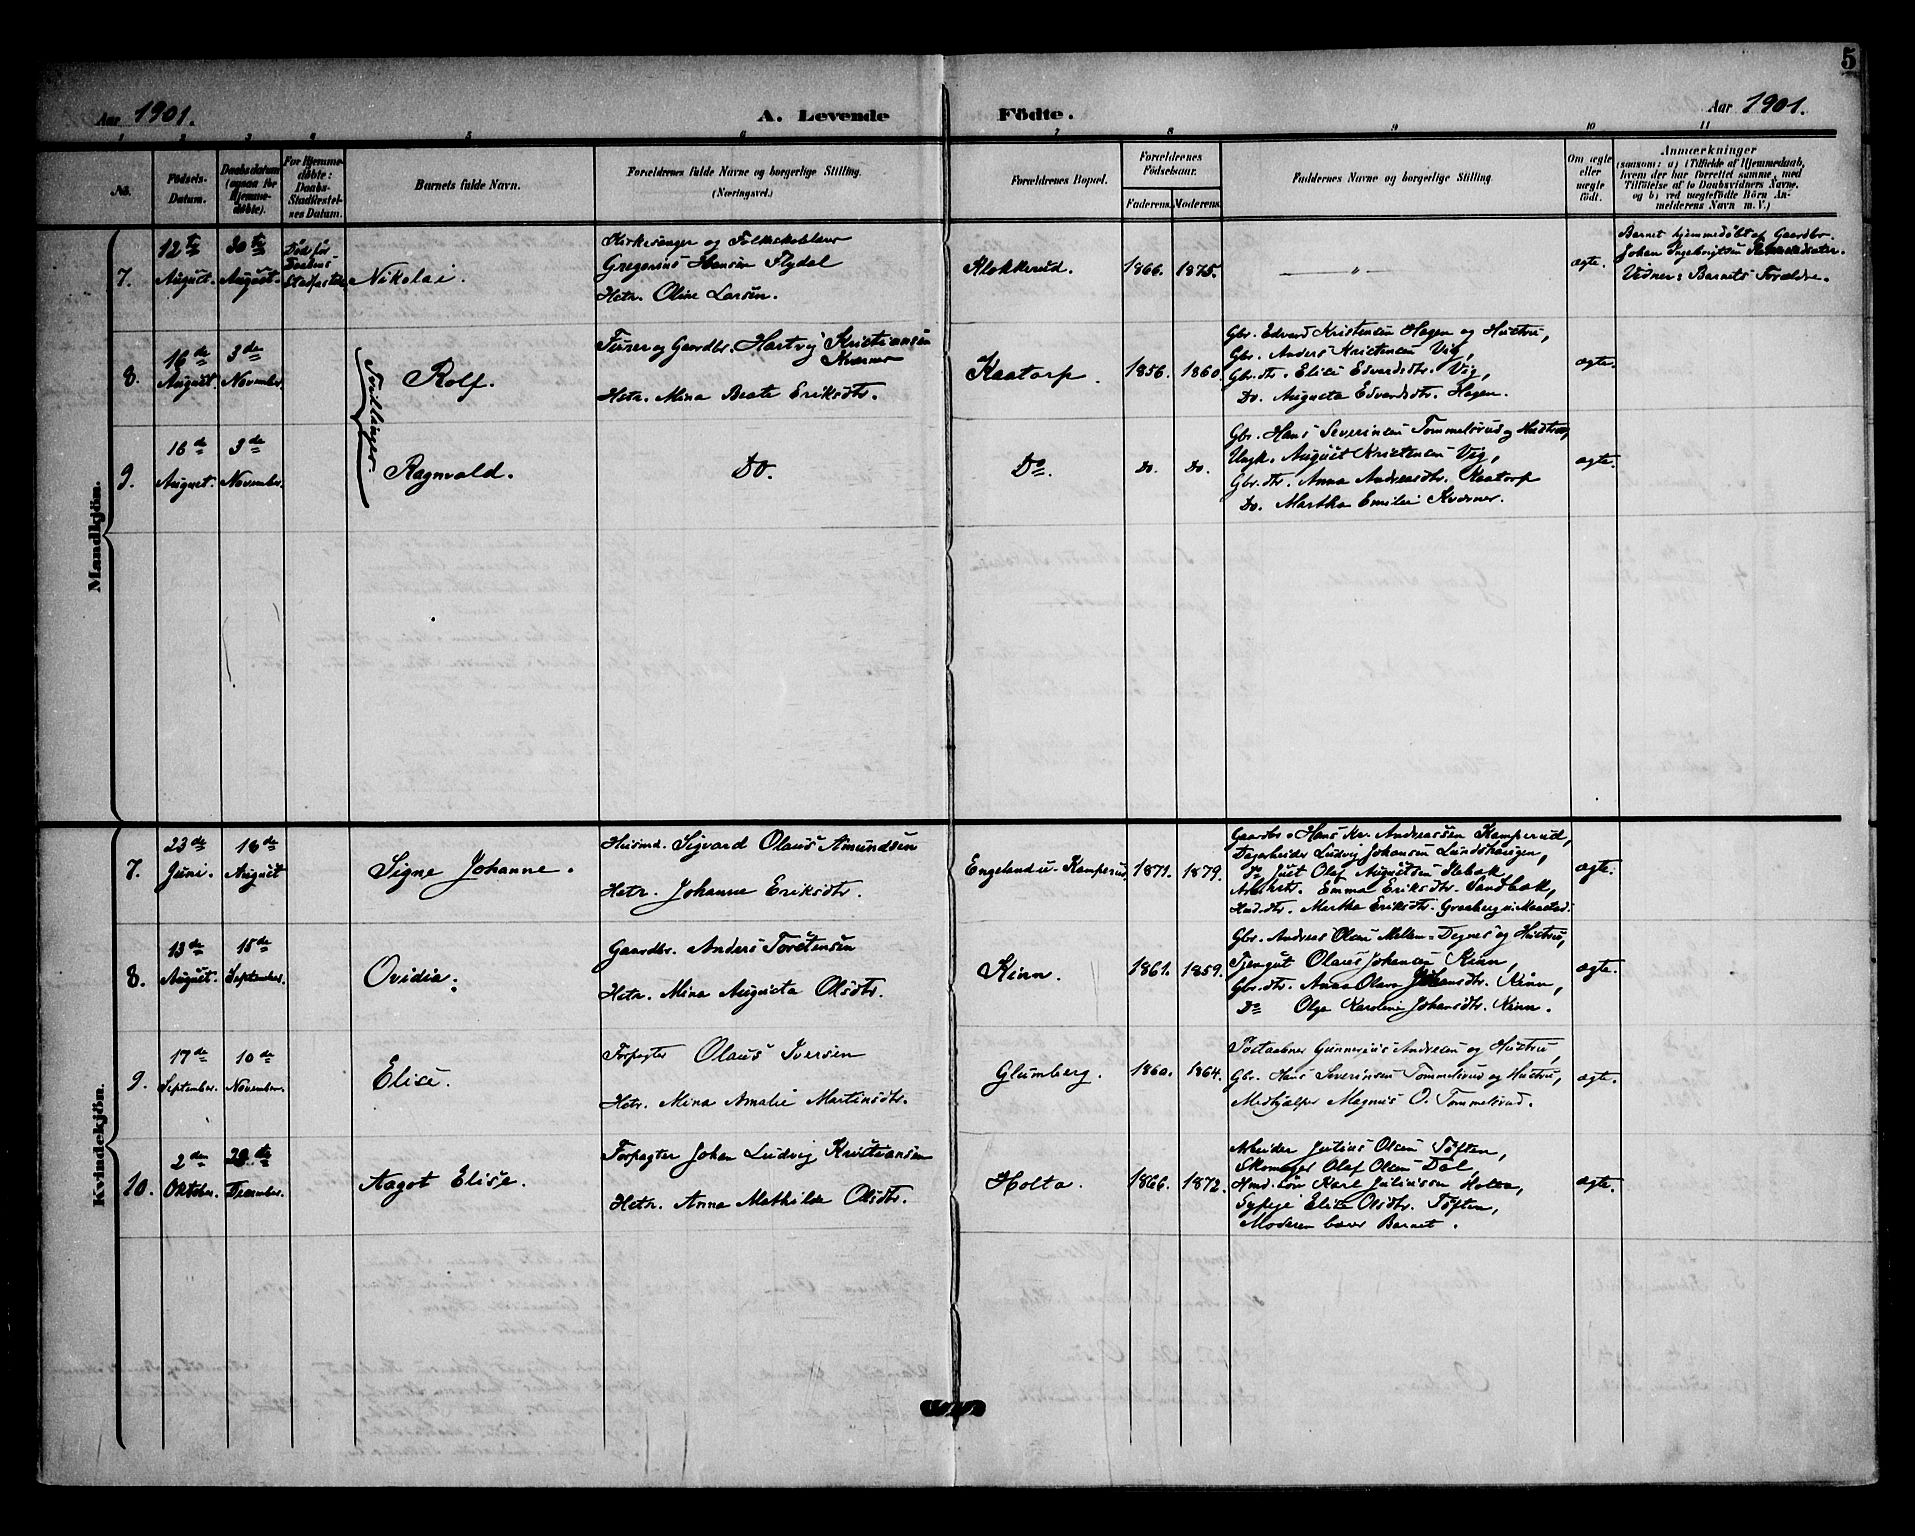 5
Aar 1901.
A. Levende Födte.
Aar 1901.
1 2 3 4 5 6 7 8 9 10 11
No.
Födsels-
Datum.
Daabsdatum
(ogsaa for
Hjemme-
döbte).
For Hjemme-
döbte:
Daabs-
Stadfæstel-
ses Datum.
Barnets fulde Navn.
Forældrenes fulde Navne og borgerlige Stilling.
(Næringsvei.)
Forældrenes Bopæl.
Forældrenes
Födselsaar.
Faderens. Moderens.
Faddernes Navne og borgerlige Stilling.
Om ægte
eller
uægte
födt.
Anmærkninger
(saasom: a) i Tilfælde af Hjemmedaab,
hvem der har forrettet samme, med
Tilföielse af to Daabsvidners Navne,
og b) ved uægtefödte Börn An-
melderens Navn m. V.)
Mandkjön.
7.
12te
August.
30te
August.
Död før
Daabens
Stadfæstelse
Nikolai.
Kirkesanger og Folkeskolelærer
Gregorius Hansen Flydal
Hstr. Oline Larsen.
Klokkerud.
1866. 1875.
— " —
ægte.
Barnet hjemmedøbt af Gaardbr.
Johan Ingebrigtsen
Vidner: Barnets Forældre.
8.
16de
August.
3de
November.
Tvillinger.
Rolf.
og Gaardbr. Hartvig Kristiansen
Kværner
Hstr. Mina Beate Eriksdtr.
Kaatorp.
1856. 1860.
Gbr. Edvard Kristensen Hagen og Hustru,
Gbr. Anders Kristensen Vig,
Gbr.dtr. Elise Edvardsdtr. Vig,
Do. Augusta Edvardsdtr. Hagen.
ægte.
9.
16de
August.
3de
November.
Ragnvald.
Do
Do
Do. Do.
Gbr. Hans Severinsen Tommelsrud og Hustru,
Ungk. August Kristensen Vig,
Gbr.dtr. Anna Andreasdtr. Kaatorp
Do. Martha Emilie Kværner.
ægte.
Kvindekjön.
7.
23de
Juni.
18de
August
Signe Johanne.
Husmd. Sigvard Olaus Amundsen
Hstr. Johanne Eriksdtr.
Engeland u. Kamperud.
1871. 1879.
Gaardbr. Hans Kr. Andreassen Kamperud,
Dagarbeider Ludvig Johansen Lundshaugen,
Do Just Olaf Augustsen Slabak,
Emma Eriksdtr. Sandbak,
Hmd.dtr. Martha Eriksdtr. Graaberg u. Maastad.
ægte.
8.
13de
August.
15de
September.
Ovidia.
Gaardbr. Anders Torstensen
Hstr. Mina Augusta Olsdtr.
Kinn.
1861. 1859.
Gbr. Andreas Olsen Mellem-Degnes og Hustru,
Tjengut Olaus Johansen Kinn,
Gbr.dtr. Anna Olava Johansdtr. Kinn,
Do Olga Karoline Johansdtr. Kinn.
ægte.
9.
17de
September.
10de
November.
Elise.
Forpagter Olaus Iversen
Hstr. Mina Amalie Martinsdtr.
Glumberg.
1860. 1864.
Postaabner Gunnerius Andresen og Hustru,
Gbr. Hans Severinsen Tommelsrud og Hustru,
Medhjælper Magnus O. Tommelsrud.
ægte.
10.
2den
Oktober.
December.
Aagot Elise.
Forpagter Johan Ludvig Kristiansen
Hstr. Anna Mathilde Olsdtr.
Holta.
1866. 1872.
Arbeider Julius Olsen Toften,
Skomager Olaf Olsen Dal,
Hmd. søn Karl Juliussen Holta,
Sypige Elise Olsdtr. Toften,
Moderen baar Barnet.
ægte.